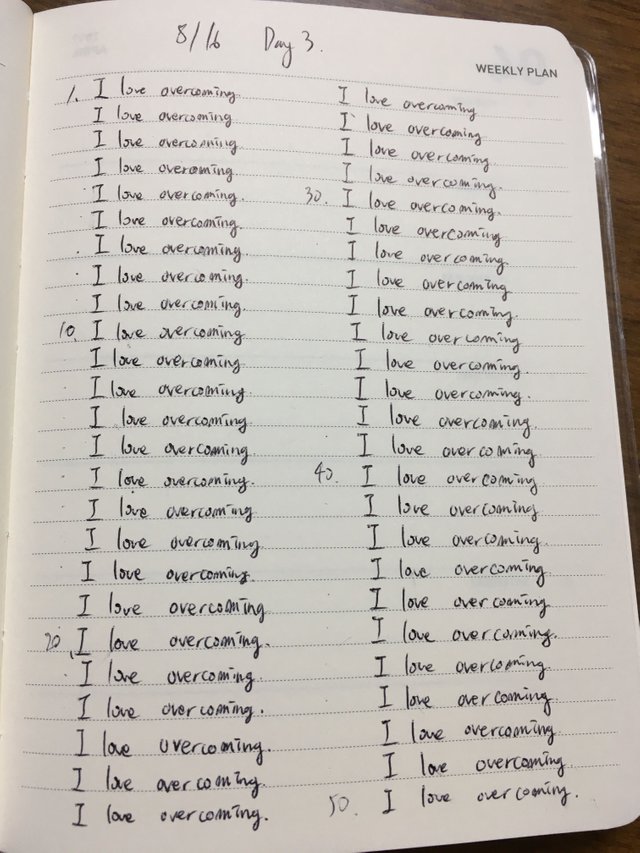 8/16 Day 3.
WEEKLY PLAN
1. I love overcoming.
I love overcoming
I love overcoming
I love overcoming
I love overcoming.
I love overcoming.
I love overcoming
I love overcoming
I love overcoming
10. I love overcoming
I love overcoming
I love overcoming.
I love overcoming
I love overcoming.
I love overcoming.
I love overcoming
I love overcoming.
I love overcoming.
I love overcoming
20. I love overcoming.
I love overcoming
I love overcoming.
I love overcoming.
I love overcoming.
I love overcoming.
I love overcoming
I love overcoming
I love overcoming.
I love overcoming.
30. I love overcoming.
I love overcoming
I love overcoming.
I love overcoming
I love overcoming.
I love overcoming
I love overcoming.
I love overcoming.
I love overcoming
I love overcoming.
40. I love overcoming.
I love overcoming
I love overcoming.
I love overcoming
I love overcoming
I love overcoming.
I love overcoming.
I love overcoming.
I love overcoming
I love overcoming.
50. I love overcoming.